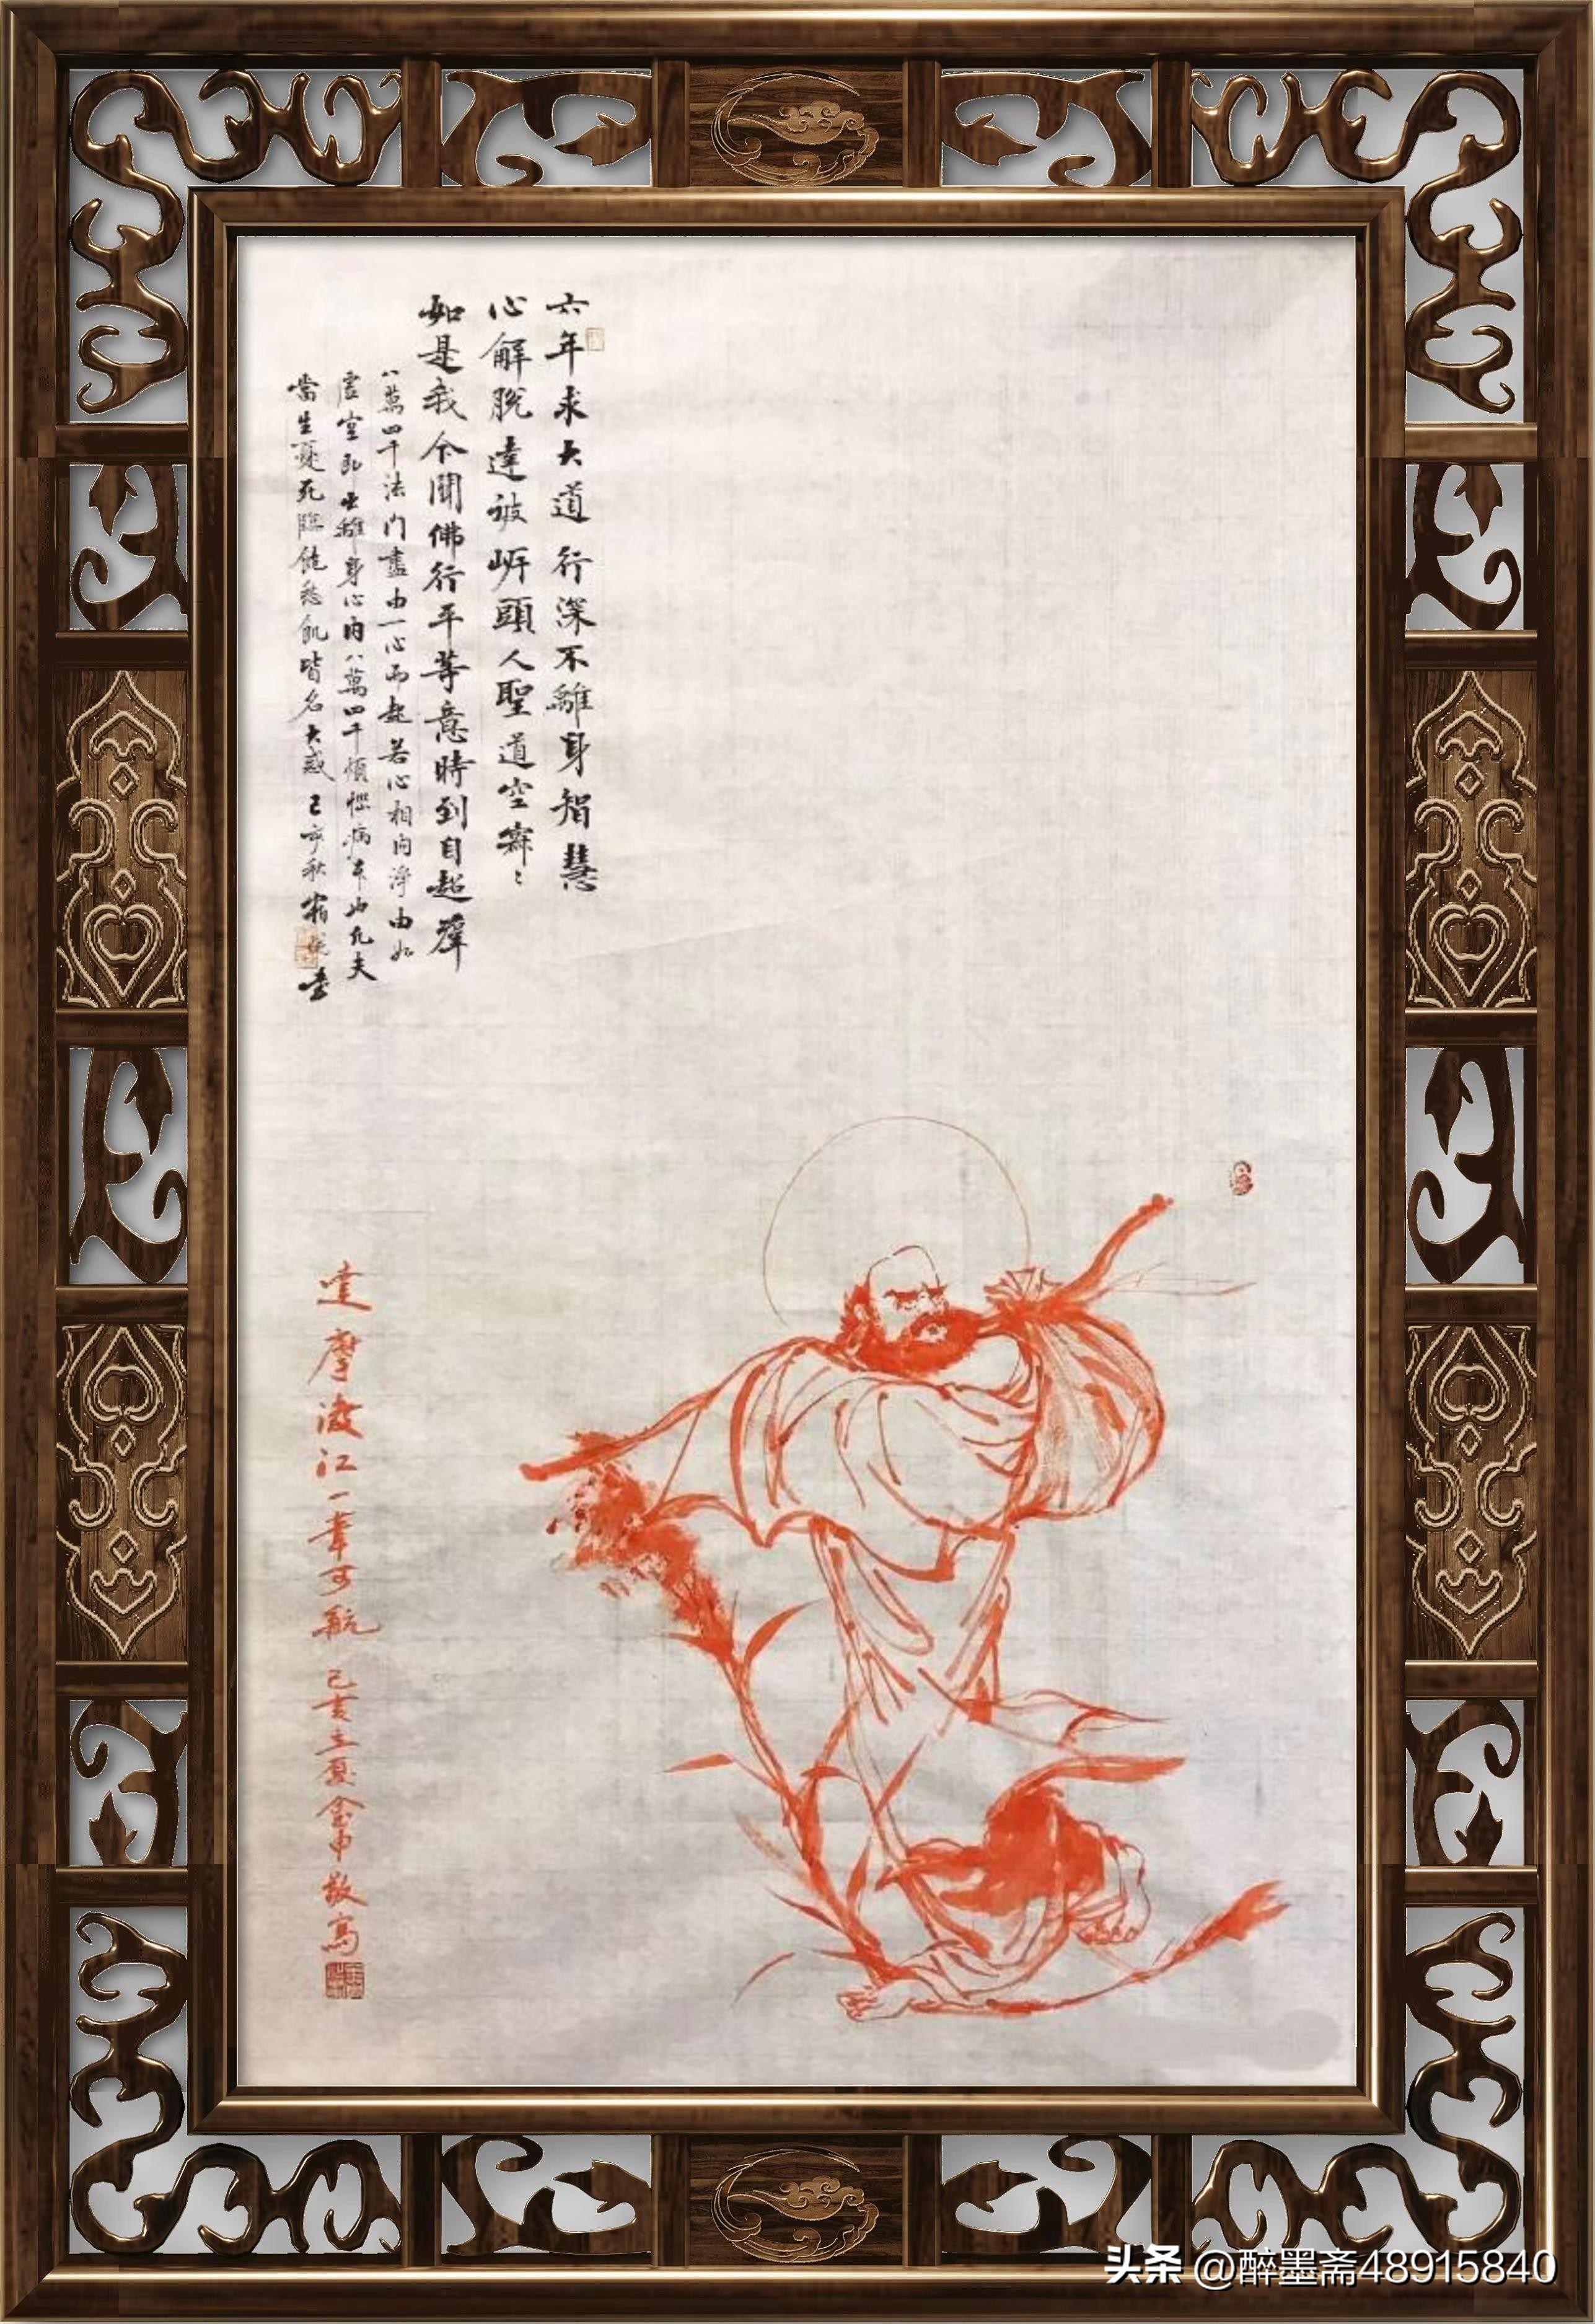 六年求大道行深不離身智慧
心解脫達彼岸頭人聖道空寂〻
如是我今聞佛行平等意時到自超群
八萬四千法門盡由一心而起若心相內淨由如
虛空即出離身心內八萬四千煩惱病本也凡夫
當生憂死臨飽愁飢皆名大惑 己亥秋 書
達摩渡江一葦可航 己亥立夏金申敬寫
头条 @醉墨斋48915840